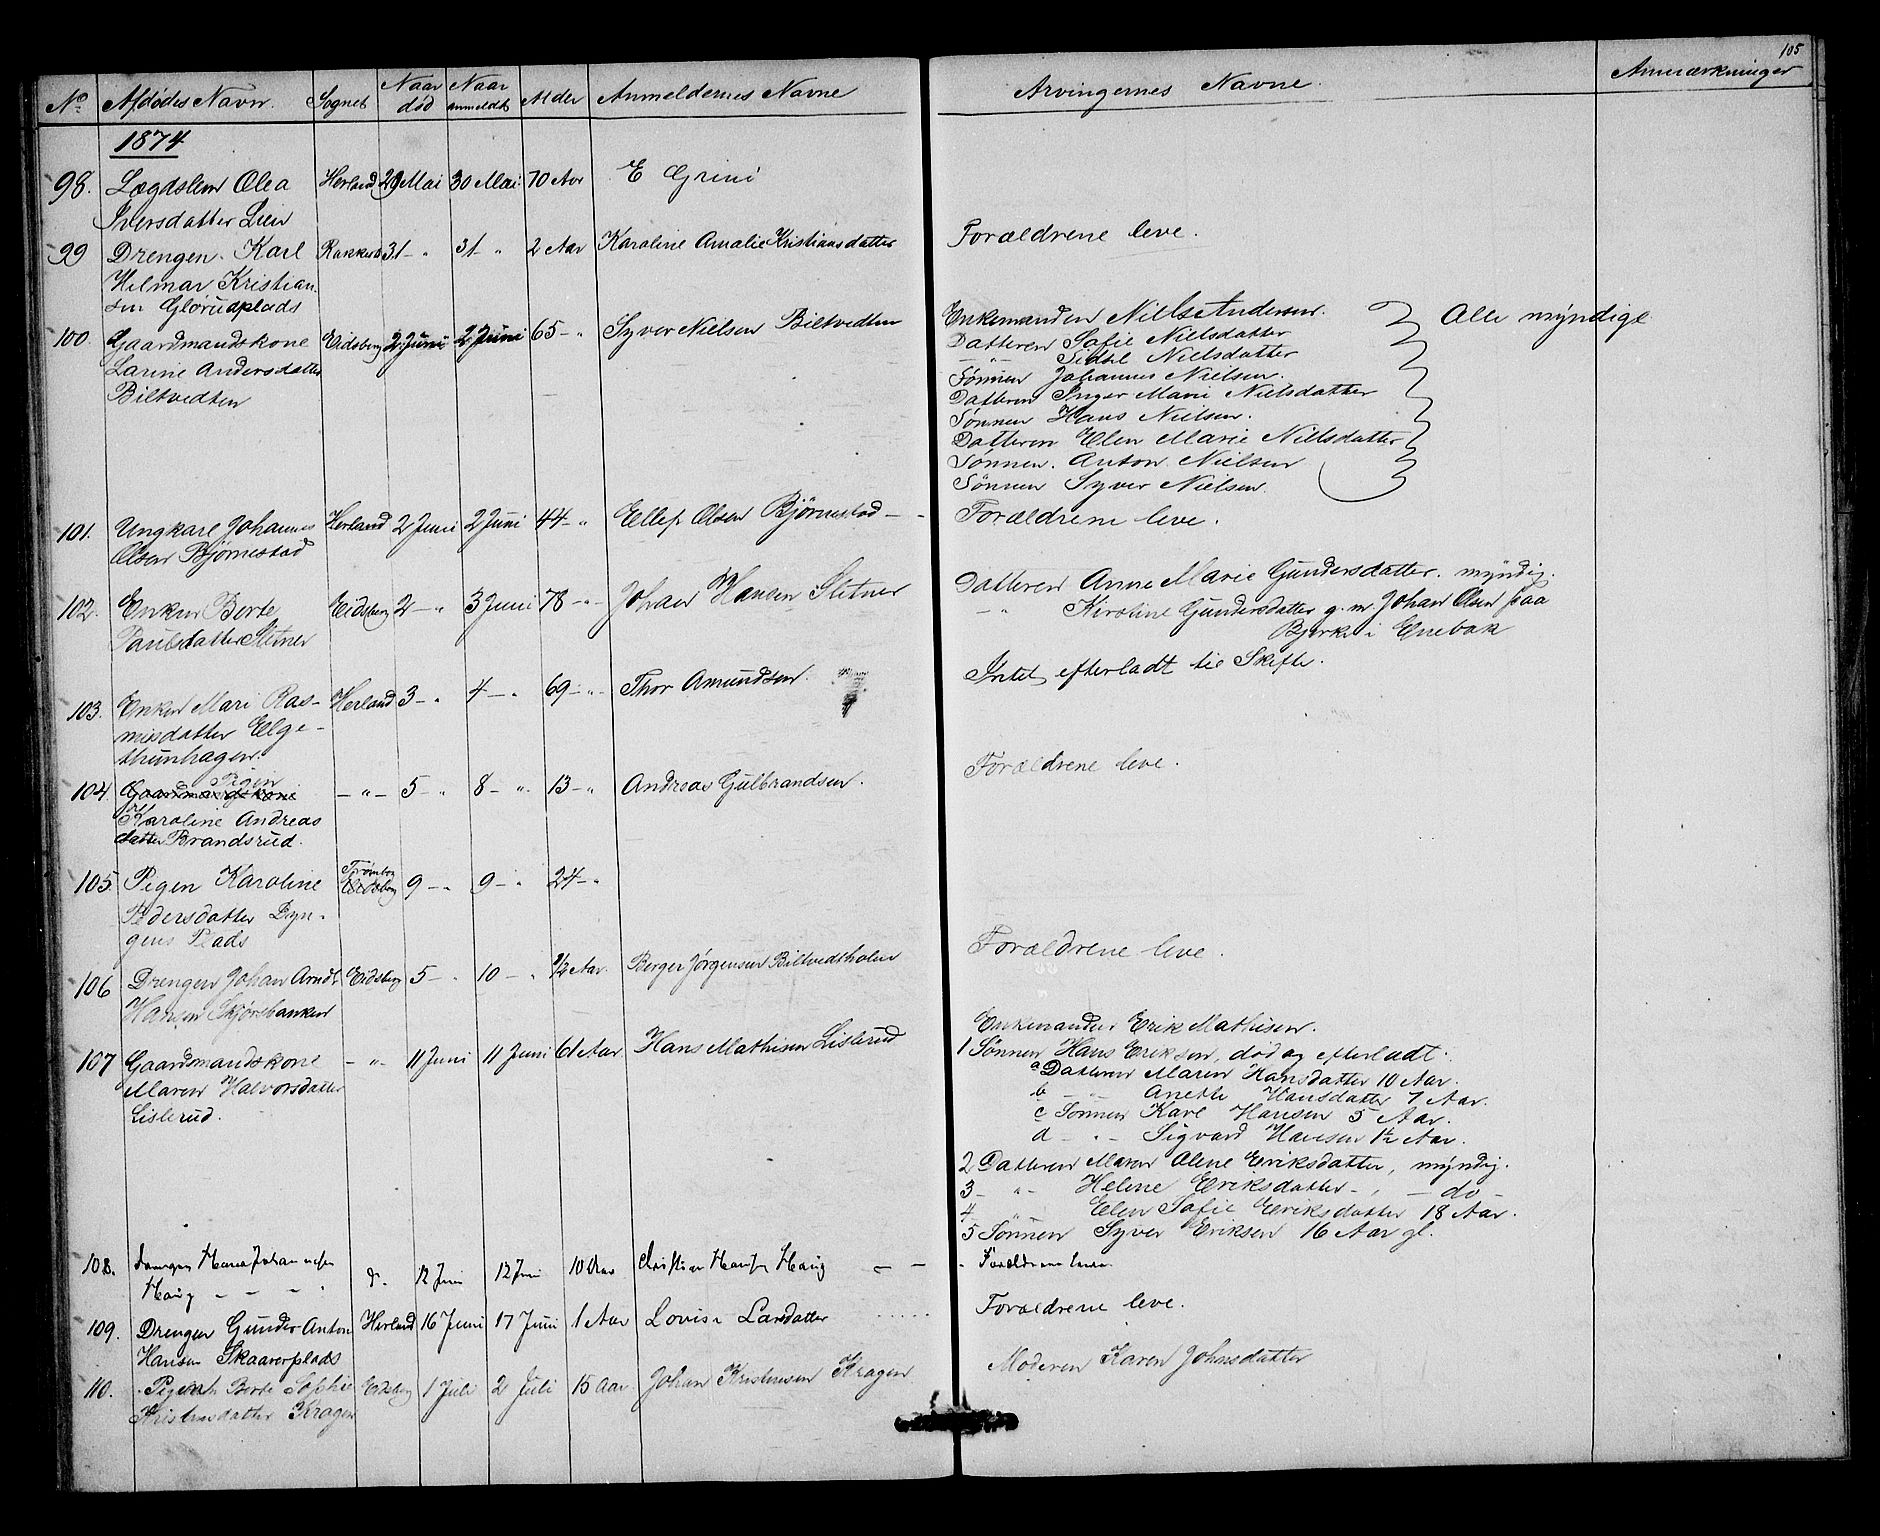 105
No Afdødes Navn. Sognet Naar død Naar anmeldt Alder Anmeldernes Navne Arvingernes Navne. Anmærkninger
1874
98. Lægdslem Olea Herland 29 Mai 30 Mai 70 Aar E Grini
Iversdatter Lien
99 Drengen Karl Rakkestad 31 - " 31 - " 2 Aar Karoline Amalie Kristiansdatter Forældrene leve.
Hilmar Kristian-
sen Glørudplads
100. Gaardmandskone Eidsberg 2 Juni 2 Juni 65 - " Syver Nielsen Biltvedten Enkemanden Niels Andersen. Alle myndige
Larine Andersdatter Datteren Sofie Nielsdatter
Biltvedten - " - Sidsel Nielsdatter
Sønnen Johannes Nielsen.
Datteren Inger Marie Nielsdatter
Sønnen Hans Nielsen.
Datteren Elen Marie Nielsdatter
Sønnen. Anton Nielsen
Sønnen Syver Nielsen.
101. Ungkarl Johannes Herland 2 Juni 2 Juni 44 - " Ellef Olsen Bjørnestad - - Forældrene leve.
Olsen Bjørnestad
102. Enken Berte Eidsberg 2 - " 3 Juni 78 - " - Johan Hansen Sletner Datteren Anne Marie Gundersdatter. myndig.
Paulsdatter Sletner - " Karoline Gundersdatter g. m. Johan Olsen paa
Bjerke i Enebak
103. Enken Mari Ras- Herland 3 - " 4 - " 69 - " - Thor Amundsen. Intet efterladt til Skifte.
musdatter Elge-
thunhagen.
104. Gaardmandskone Pigen - " - 5 - " 8 - " 13 - " Andreas Gulbrandsen. Forældrene leve.
Karoline Andreas
datter Brandsrud.
105. Pigen Karoline Eidsberg Trømborg 9 - " 9 - " 24 - "
Pedersdatter Dyn-
gens Plads
106 Drengen Johan Arndt Eidsberg 5 - " 10 - " 1/2 Aar. Berger Jørgensen Biltvedtholen Forældrene leve.
Hansen Skjørsbanken
107 Gaardmandskone - " - 11 Juni 11 Juni 61 Aar Hans Mathisen Lislerud Enkemanden Erik Mathisen.
Maren Halvorsdatter 1 Sønnen Hans Eriksen, død og efterladt:
Lislerud. a Datteren Maren Hansdatter 10 Aar.
b - " - Anethe Hansdatter 7 Aar.
c Sønnen Karl Hansen 5 Aar.
d - " - Sigvard Hansen 1 1/2 Aar.
2 Datteren Maren Oline Eriksdatter, myndig.
3 - " - Helene Eriksdatter - , - do -
4 Elen Sofie Eriksdatter 18 Aar.
5 Sønnen Syver Eriksen 16 Aar gl.
108. Drengen Hans Johannesen d. 12 Juni 12 Juni 10 Aar Christian Hansen Haug - - Forældrene leve.
Haug - - - -
109. Drengen Gunder Anton Herland 16 Juni 17 Juni 1 Aar Lovise Larsdatter Forældrene leve.
Hansen Skaarerplads
110. Pigen Berte Sophie Eidsberg 1 Juli 2 Juli 15 Aar. Johan Kristensen Kragen Moderen Karen Johnsdatter
Kristensdatter Kragen